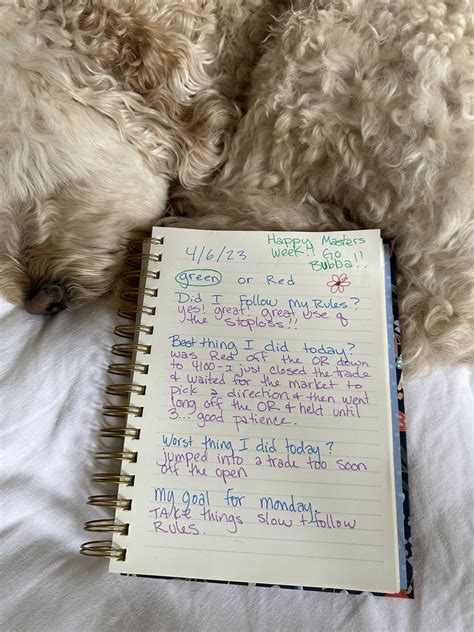 4/6/23
Happy Masters
Week!! Go
Bubba!!
green or Red
Did I follow my Rules?
yes! great! great use of
the stoploss!!
Best thing I did today?
was Red off the OR down
to 4100 - I just closed the trade
& waited for the market to
pick a direction & then went
long off the OR & held until
3... good patience.
Worst thing I did today?
jumped into a trade too soon
off the open
my goal for monday.
TAKE things slow + follow
Rules.